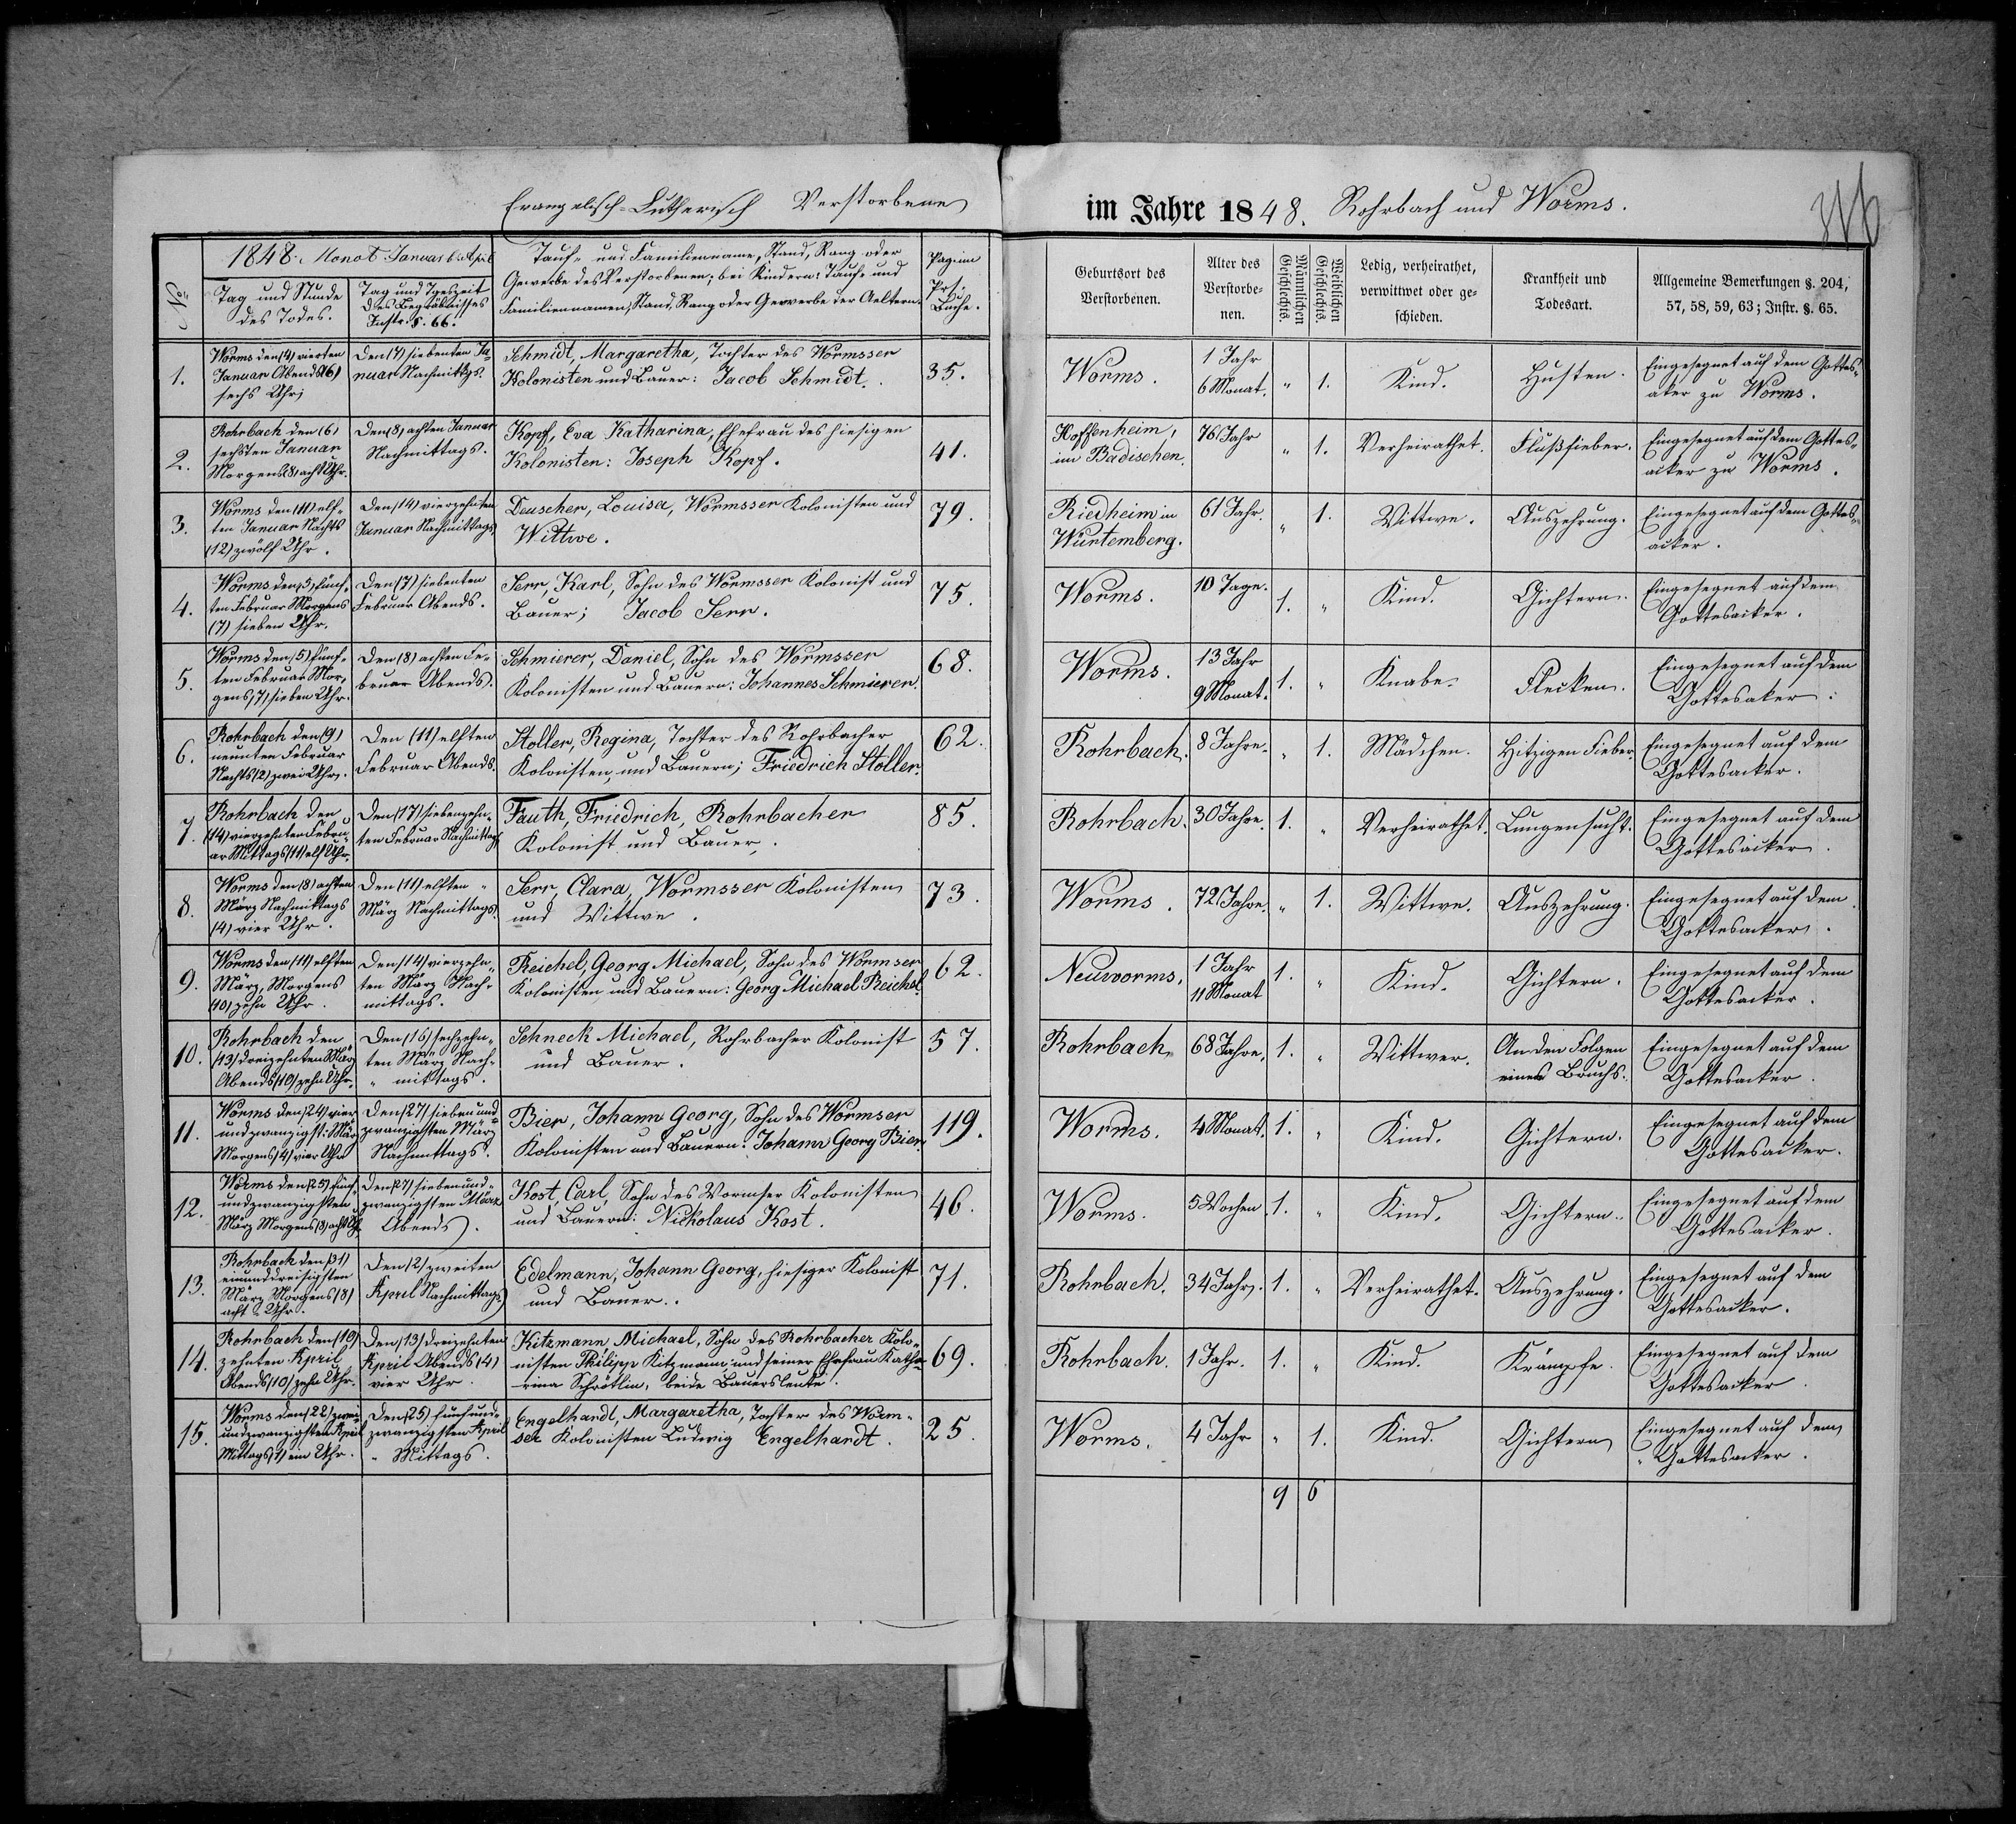 Evangelisch-Lutherisch Verstorbene
im Jahre 1848. Rohrbach und Worms.
1848. Monat Januar bis April
No
Tag und Stunde
des Todes.
Tag und Tgeszeit
des Begräbnisses
Instr. §. 66.
Tauf- und Familienname, Stand, Rang oder
Gewerbe des Verstorbenen; bei Kindern: Tauf- und
Familiennamen, Stand, Rang oder Gewerbe der Aeltern.
Pag: im
Buche.
Geburtsort des
Verstorbenen.
Alter des
Verstorbe-
nen.
Männlichen
Geschlechts.
Weiblichen
Geschlechts.
Ledig, verheirathet,
verwittwet oder ge-
schieden.
Krankheit und
Todesart.
Allgemeine Bemerkungen §. 204,
57, 58, 59, 63; Instr. §. 65.
1.
Worms den (4) vierten
Januar Abends (6)
sechs Uhr;
Den (7) siebenten Ja-
nuar Nachmittgs.
Schmidt, Margaretha, Tochter des Wormsser
Kolonisten und Bauer: Jacob Schmidt.
35.
Worms.
1 Jahr
6 Monat.
" 1.
Kind.
Husten.
Eingesegnet auf dem Gottes-
aker zu Worms.
2.
Rohrbach den (6)
sechsten Januar
Morgens (8) acht Uhr.
Den (8) achten Januar
Nachmittags.
Kopf, Eva Katharina, Ehefrau des hiesigen
Kolonisten: Joseph Kopf.
41.
Hoffenheim,
im Badischen.
76 Jahr
" 1.
Verheirathet.
Flußfieber.
Eingesegnet auf dem Gottes-
acker zu Worms.
3.
Worms den (11) elf-
ten Januar Nachts
(12) zwölf Uhr.
Den (14) vierzehnten
Januar Nachmittags
Deuscher, Louisa, Wormsser Kolonisten und
Wittwe.
79.
Riedheim in
Würtemberg.
61 Jahr.
" 1.
Wittwe.
Auszehrung.
Eingesegnet auf dem Gottes-
acker.
4.
Worms den (5) fünf-
ten Februar Morgens
(7) sieben Uhr.
Den (7) siebenten
Februar Abends.
Serr, Karl, Sohn des Wormsser Kolonist und
Bauer; Jacob Serr.
75.
Worms.
10 Tage.
1. "
Kind.
Gichtern.
Eingesegnet auf dem
Gottesacker.
5.
Worms den (5) fünf-
ten Februar Mor-
gens (7) sieben Uhr.
Den (8) achten Fe-
bruar Abends.
Schmierer, Daniel, Sohn des Wormsser
Kolonisten und Bauern: Johannes Schmierer.
68.
Worms.
13 Jahr
9 Monat.
1. "
Knabe.
Flecken.
Eingesegnet auf dem
Gottesaker.
6.
Rohrbach den (9)
neunten Februar
Nachts (2) zwei Uhr.
Den (11) elften
Februar Abends.
Stoller, Regina, Tochter des Rohrbacher
Kolonisten, und Bauern; Friedrich Stoller.
62.
Rohrbach.
8 Jahre.
" 1.
Mädchen.
Hitzigen Fieber.
Eingesegnet auf dem
Gottesacker.
7.
Rohrbach den
(14) vierzehnten Febru-
ar Mittags (11) elf Uhr
Den (17) siebenzehn-
ten Februar Nachmittag
Fauth, Friedrich, Rohrbacher
Kolonist und Bauer.
85.
Rohrbach.
30 Jahre.
1. "
Verheirathet.
Lungensucht.
Eingesegnet auf dem
Gottesacker.
8.
Worms den (8) achten
März Nachmittags
(4) vier Uhr.
Den (11) elften
März Nachmittags.
Serr, Clara, Wormsser Kolonisten
und Wittwe.
73.
Worms.
72 Jahre.
" 1.
Wittwe.
Auszehrung.
Eingesegnet auf dem
Gottesacker.
9.
Worms den (11) elften
März, Morgens
(10) zehn Uhr.
Den (14) vierzehn-
ten März Nach-
mittags.
Reichel, Georg Michael, Sohn des Wormser
Kolonisten und Bauern: Georg Michael Reichel
62.
Neuworms.
1 Jahr
11 Monat
1. "
Kind.
Gichtern.
Eingesegnet auf dem
Gottesacker.
10.
Rohrbach den
(13) dreizehnten März
Abends (10) zehn Uhr.
Den (16) sechzehn-
ten März Nach-
" mittags.
Schneck Michael, Rohrbacher Kolonist
und Bauer.
57.
Rohrbach.
68 Jahre.
1. "
Wittwer.
An den Folgen
eines Bruchs.
Eingesegnet auf dem
Gottesacker.
11.
Worms den (24) vier
undzwanzigst: März
Morgens (4) vier Uhr
Den (27) sieben und
zwanzigsten März
Nachmittags.
Bier, Johann Georg, Sohn des Wormser
Kolonisten und Bauern: Johann Georg Bier.
119.
Worms.
4 Monat.
1. "
Kind.
Gichtern.
Eingesegnet auf dem
Gottesacker.
12.
Worms den (25) fünf
undzwanzigsten
März Morgens (8) acht Uhr
Den (27) siebenund-
zwanzigsten März
Abends.
Kost, Carl, Sohn des Wormser Kolonisten
und Bauern: Nickolaus Kost.
46.
Worms.
5 Wochen
1. "
Kind.
Gichtern.
Eingesegnet auf dem
Gottesacker.
13.
Rohrbach den (31)
einunddreisigsten
März Morgens (8)
acht Uhr.
Den (2) zweiten
April Nachmittags
Edelmann, Johann Georg, hiesiger Kolonist
und Bauer.
71.
Rohrbach.
34 Jahr.
1. "
Verheirathet.
Auszehrung.
Eingesegnet auf dem
Gottesacker.
14.
Rohrbach den (10)
zehnten April
Abends (10) zehn Uhr.
Den (13) dreizehnten
April Abends (4)
vier Uhr.
Kitzmann Michael, Sohn des Rohrbacher Kolo-
nisten Philipp Kitzmann und seiner Ehefrau Katha-
rina Schrötlin, beide Bauersleute.
69.
Rohrbach.
1 Jahr.
1. "
Kind.
Krämpfe.
Eingesegnet auf dem
Gottesacker.
15.
Worms den (22) zwei-
undzwanzigsten April
Mittags (1) ein Uhr.
Den (25) fünfund-
zwanzigsten April
" Mittags.
Engelhardt, Margaretha, Tochter des Worm-
ser Kolonisten Ludwig Engelhardt.
25.
Worms.
4 Jahr
" 1.
Kind.
Gichtern
Eingesegnet auf dem
Gottesacker.
9 6